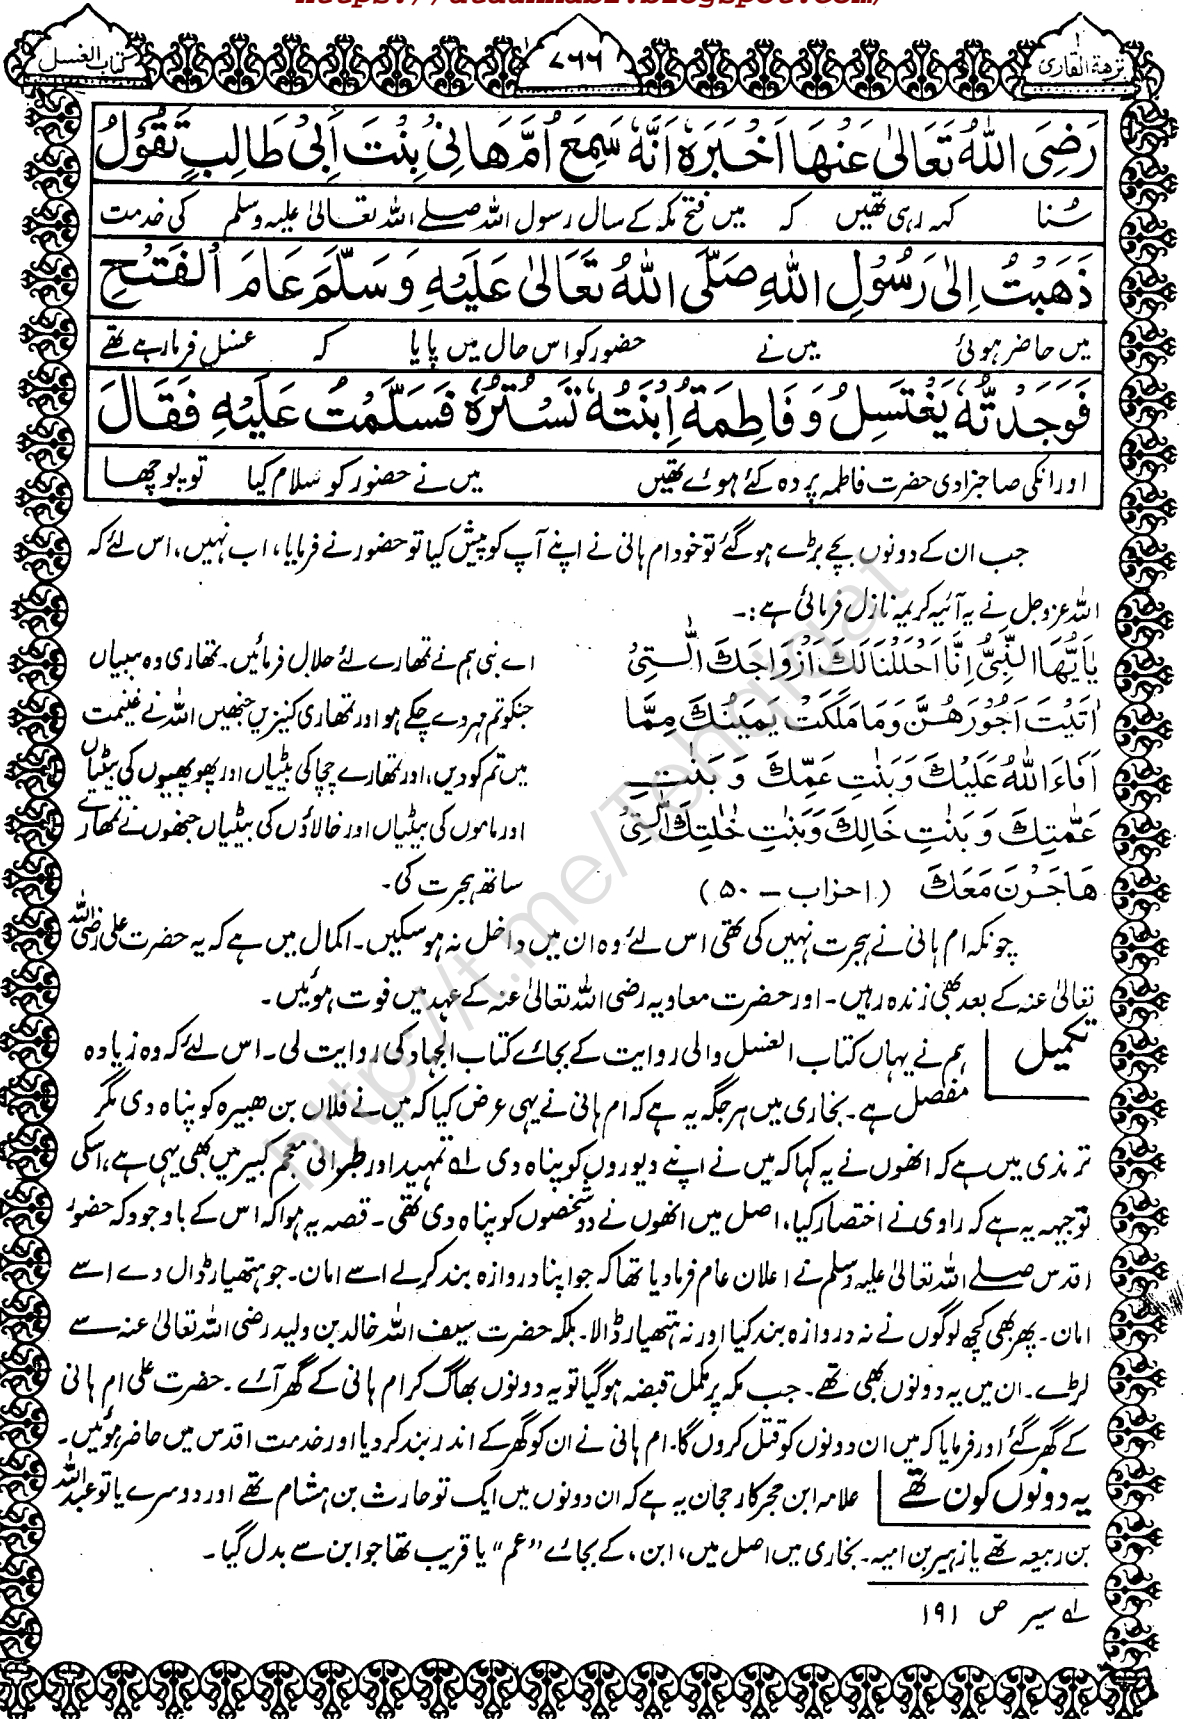 https://ataunnabi.blogspot.com/
نزھۃ القاری ۱
۷۶۶
کتاب الغسل
رَضِیَ اللّٰہُ تَعَالیٰ عَنْہَا اَخْبَرَہٗ اَنَّہٗ سَمِعَ اُمَّ ھَانِیُٔ بِنْتَ اَبِیْ طَالِبٍ تَقُوْلُ
سُنا کہہ رہی تھیں کہ میں فتح مکہ کے سال رسول اللہ صلے اللہ تعالیٰ علیہ وسلم کی خدمت
ذَھَبْتُ اِلیٰ رَسُوْلِ اللّٰہِ صَلَّی اللّٰہُ تَعَالیٰ عَلَیْہِ وَسَلَّمَ عَامَ الْفَتْحِ
میں حاضر ہوئی میں نے حضور کو اس حال میں پایا کہ غسل فرما رہے تھے
فَوَجَدْتُّہٗ یَغْتَسِلُ وَفَاطِمَۃُ اِبْنَتُہٗ تَسْتُرُہٗ فَسَلَّمْتُ عَلَیْہِ فَقَالَ
اور انکی صاجزادی حضرت فاطمہ پردہ کئے ہوئے تھیں میں نے حضور کو سلام کیا تو پوچھا
جب ان کے دونوں بچے بڑے ہو گئے تو خود ام ہانی نے اپنے آپ کو پیش کیا تو حضور نے فرمایا، اب نہیں، اس لئے کہ
اللہ عزوجل نے یہ آیۂ کریمہ نازل فرمائی ہے:۔
یٰاَیُّھَا النَّبِیُّ اِنَّا اَحْلَلْنَا لَکَ اَزْوَاجَکَ الّٰتِیْ اے نبی ہم نے تمھارے لئے حلال فرمائیں۔ تمھاری وہ بیبیاں
اٰتَیْتَ اُجُوْرَھُنَّ وَمَا مَلَکَتْ یَمِیْنُکَ مِمَّا جنکو تم مہر دے چکے ہو اور تمھاری کنیزیں جنھیں اللہ نے غنیمت
اَفَاءَ اللّٰہُ عَلَیْکَ وَبَنٰتِ عَمِّکَ وَ بَنٰتِ میں تم کو دیں، اور تمھارے چچا کی بیٹیاں اور پھوپھیوں کی بیٹیاں
عَمّٰتِکَ وَ بَنٰتِ خَالِکَ وَبَنٰتِ خٰلٰتِکَ الّٰتِیْ اور ماموں کی بیٹیاں اور خالاؤں کی بیٹیاں جنھوں نے تمھارے
ھَاجَرْنَ مَعَکَ (احزاب – ۵۰) ساتھ ہجرت کی۔
چونکہ ام ہانی نے ہجرت نہیں کی تھی اس لئے وہ ان میں داخل نہ ہو سکیں۔ اکمال میں ہے کہ یہ حضرت علی رضی اللہ
تعالیٰ عنہ کے بعد بھی زندہ رہیں۔ اور حضرت معاویہ رضی اللہ تعالیٰ عنہ کے عہد میں فوت ہوئیں۔
تکمیل ہم نے یہاں کتاب الغسل والی روایت کے بجائے کتاب الجہاد کی روایت لی۔ اس لئے کہ وہ زیادہ
مفصل ہے۔ بخاری میں ہر جگہ یہ ہے کہ ام ہانی نے یہی عرض کیا کہ میں نے فلاں بن ھبیرہ کو پناہ دی مگر
ترمذی میں ہے کہ انھوں نے یہ کہا کہ میں نے اپنے دیوروں کو پناہ دی لہ تمہید اور طبرانی معجم کبیر میں بھی یہی ہے، اسکی
توجیہہ یہ ہے کہ راوی نے اختصار کیا، اصل میں انھوں نے دو شخصوں کو پناہ دی تھی۔ قصہ یہ ہوا کہ اس کے باوجود کہ حضور
اقدس صلے اللہ تعالیٰ علیہ وسلم نے اعلان عام فرما دیا تھا کہ جو اپنا دروازہ بند کر لے اسے امان۔ جو ہتھیار ڈال دے اسے
امان۔ پھر بھی کچھ لوگوں نے نہ دروازہ بند کیا اور نہ ہتھیار ڈالا۔ بلکہ حضرت سیف اللہ خالد بن ولید رضی اللہ تعالیٰ عنہ سے
لڑے۔ ان میں یہ دونوں بھی تھے۔ جب مکہ پر مکمل قبضہ ہو گیا تو یہ دونوں بھاگ کر ام ہانی کے گھر آئے۔ حضرت علی ام ہانی
کے گھر گئے اور فرمایا کہ میں ان دونوں کو قتل کروں گا۔ ام ہانی نے ان کو گھر کے اندر بند کر دیا اور خدمت اقدس میں حاضر ہوئیں۔
یہ دونوں کون تھے علامہ ابن حجر کا رجحان یہ ہے کہ ان دونوں میں ایک تو حارث بن ہشام تھے اور دوسرے یا تو عبداللہ
بن ربیعہ تھے یا زہیر بن امیہ۔ بخاری میں اصل میں، ابن، کے بجائے "عم" یا قریب تھا جو ابن سے بدل گیا۔
لہ سیر ص ۱۹۱
http://t.me/Tehqiqat